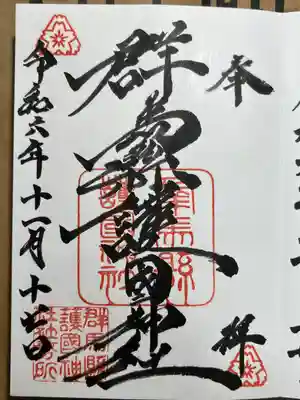 奉拝
群馬縣護國神社
群馬縣
護國神社
令和六年十一月十日
群馬縣
護國神
社社務所